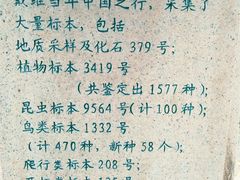 当年中国之行，采集了
大量标本，包括
地质采样及化石 379 号；
植物标本 3419 号
（共鉴定出 1577 种）；
昆虫标本 9564 号（计 100 种）；
鸟类标本 1332 号
（计 470 种，新种 58 个）；
爬行类标本 208 号；